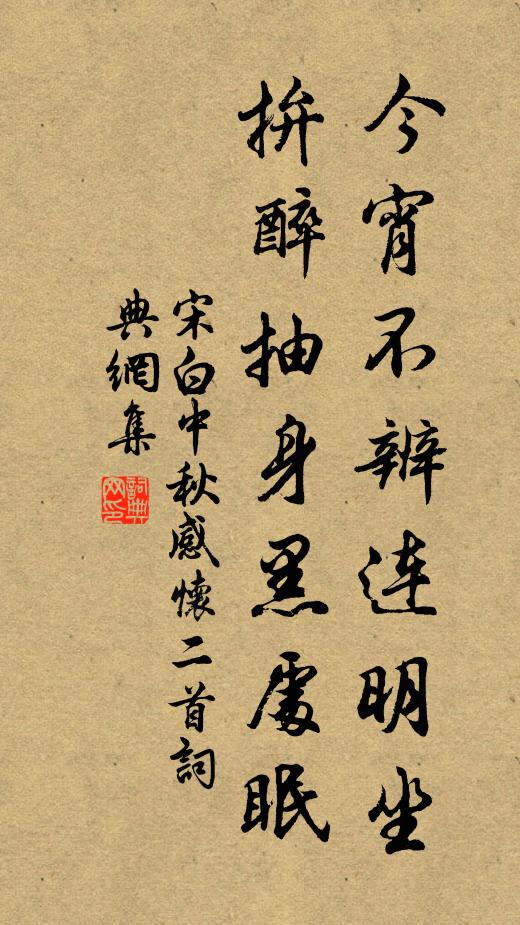 今宵不辨連明坐
拚醉抽身黑處眠
宋白中秋感懷二首詞
典網集
詞典网印